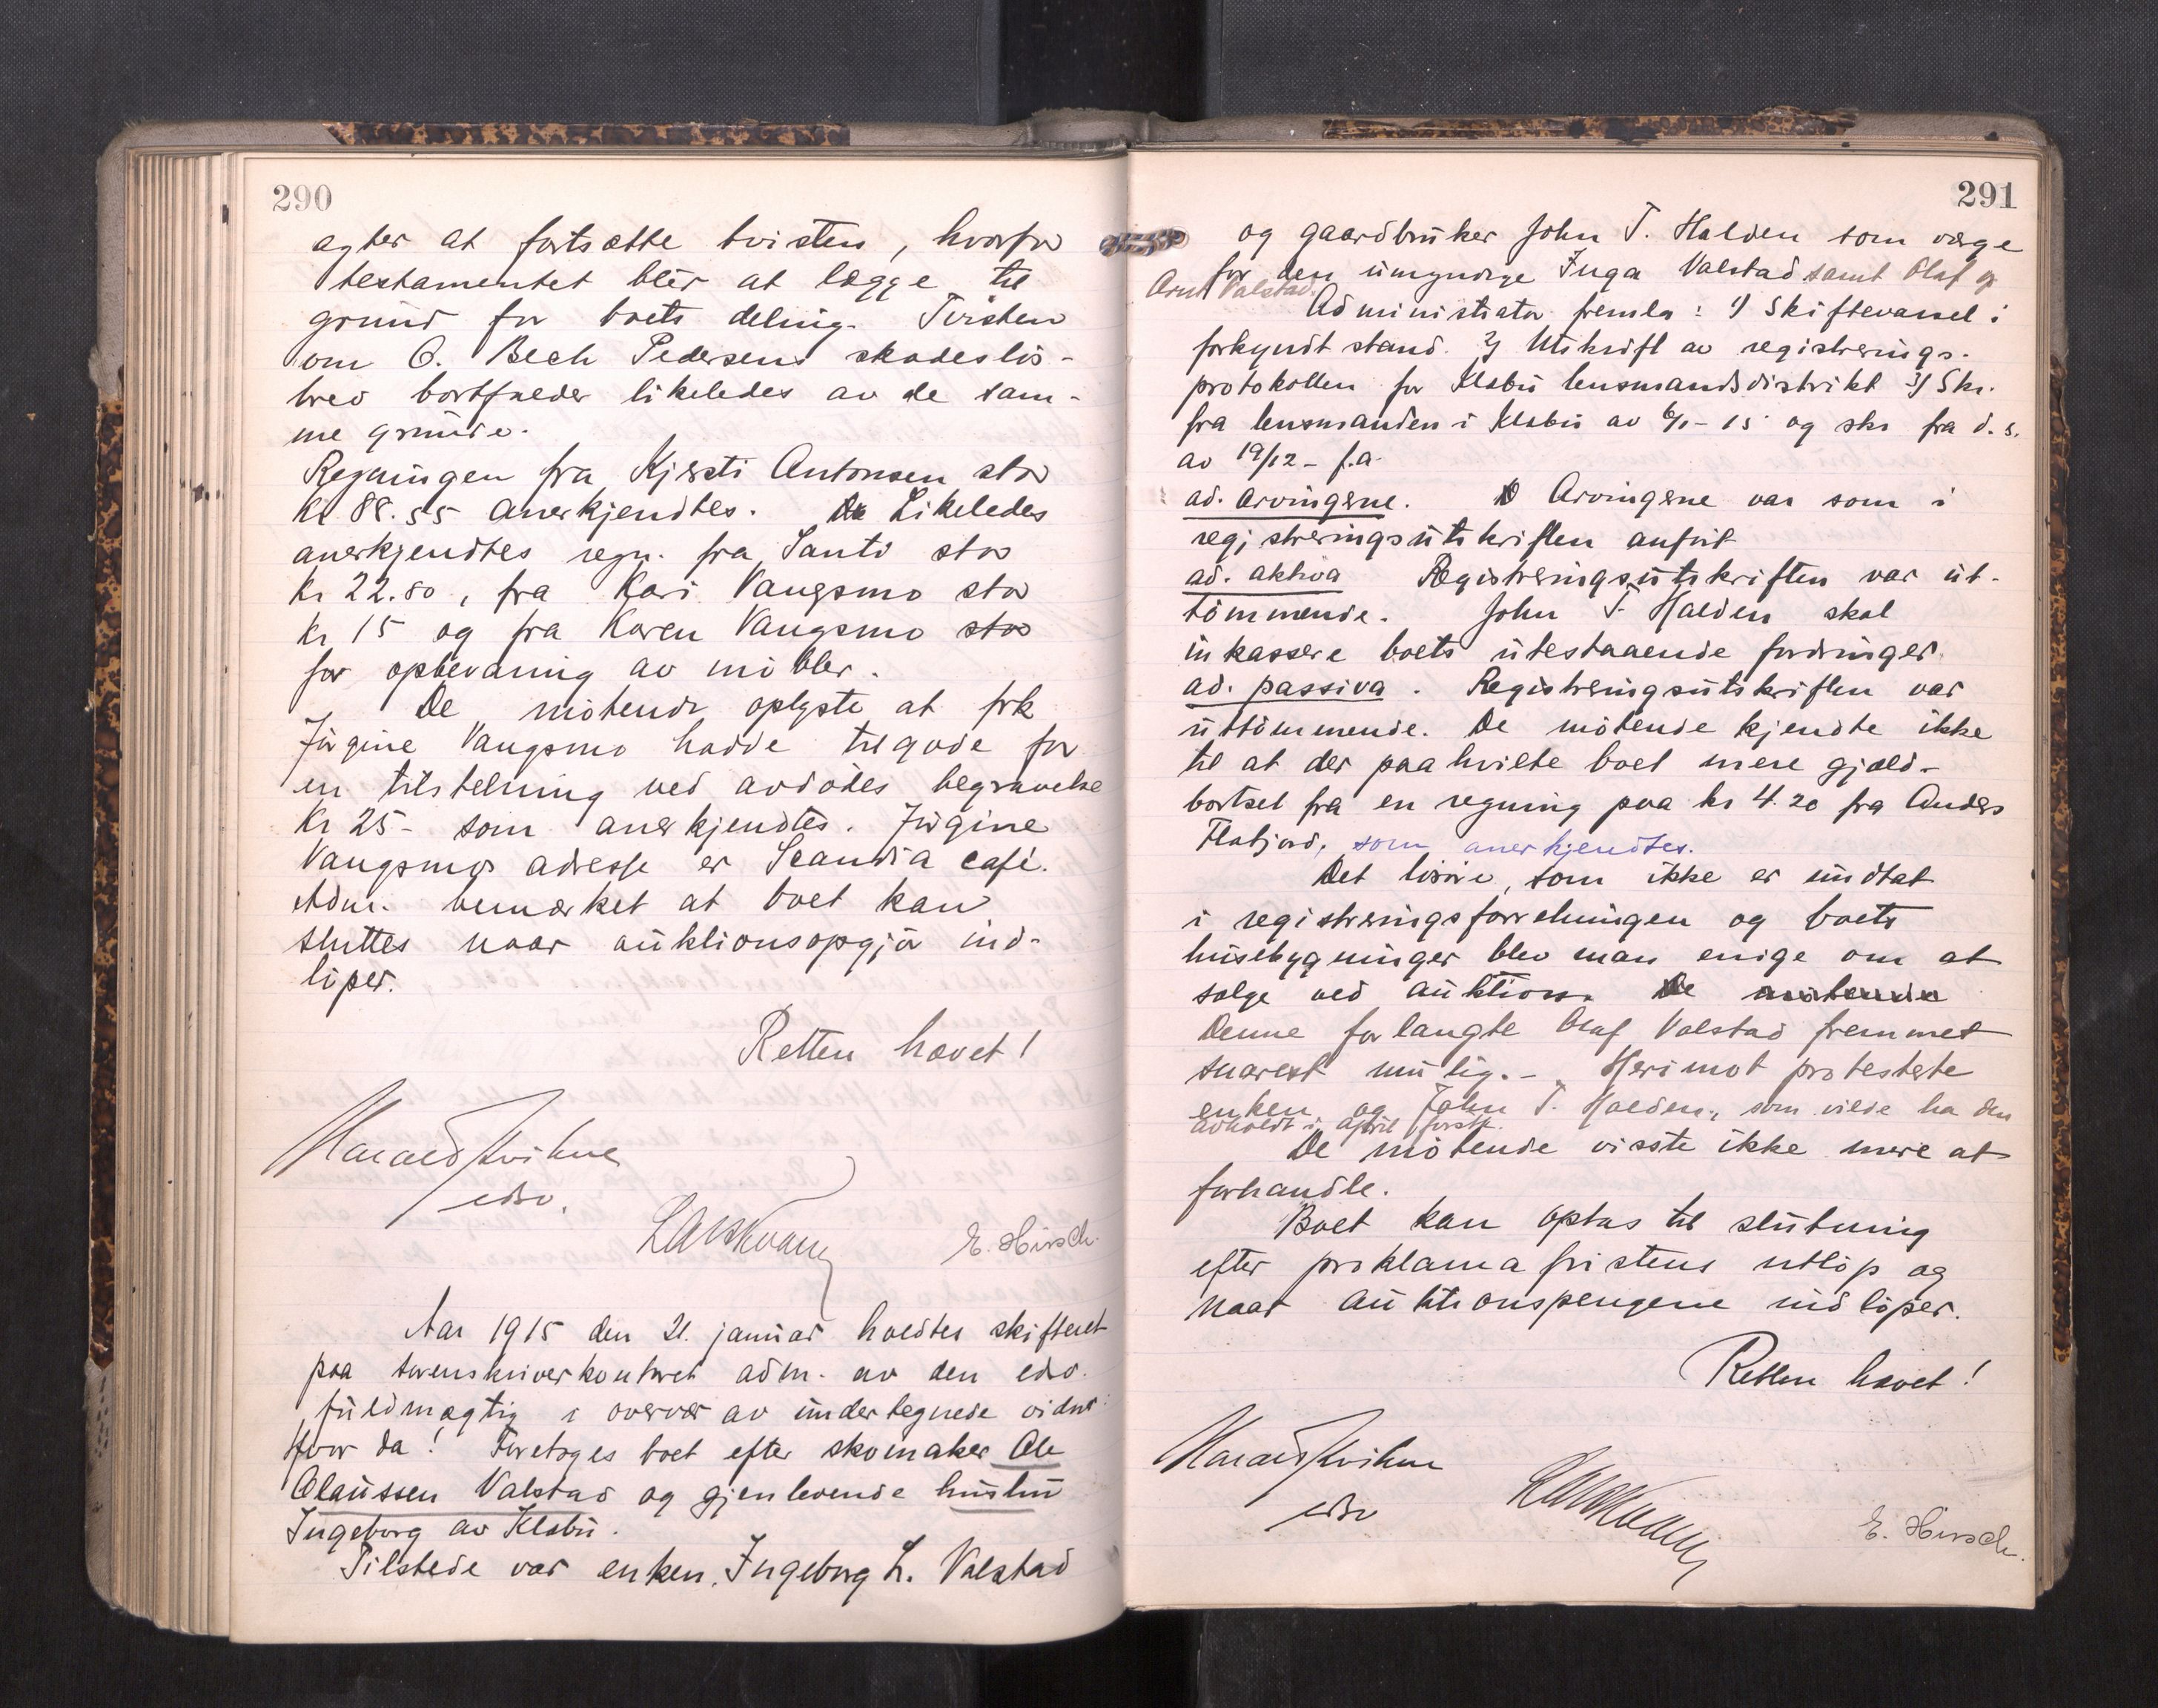 290
agter at fortsætte tvisten, hvorfor
testamentet blir at lægge til
grund for boets deling. Tvisten
om O. Bech Pedersens skadeslös-
brev bortfalder likeledes av de sam-
me grunde.
Regningen fra Kjersti Antonsen stor
kr 88.55 anerkjendtes. Likeledes
anerkjendtes regn. fra Santi stor
kr 22.80, fra Kari Vangsmo stor
kr 15 og fra Karen Vangsmo stor
for opbevaring av möbler.
De mötende oplyste at frk
Jörgine Vangsmo hadde tilgode for
en tilstelning ved avdödes begravelse
kr 25- som anerkjendtes. Jörgine
Vangsmos adresse er Scandia café.
Adm. bemærket at boet kan
sluttes naar auktionsopgjör ind-
löper.
Retten hævet!
Harald Kvihne
edsv.
E. Hirsch.
Aar 1915 den 21. januar holdtes skifteret
paa sorenskriverkontoret adm. av den edsv.
fuldmægtig i overvær av undertegnede vidner:
Hvor da! Foretoges boet efter skomaker Ole
Olaussen Valstad og gjenlevende hustru
Ingeborg av Klæbu.
Tilstede var enken, Ingeborg L. Valstad
291
og gaardbruker John T. Halden som værge
for den umyndige Inga Valstad samt Olaf og
Arnt Valstad.
Administrator fremla: 1/ Skiftevarsel i
forkyndt stand. 2/ Utskrift av registrerings-
protokollen for Klæbu lensmandsdistrikt 3/ Skr.
fra lensmanden i Klæbu av 6/1-15 og skr fra d. s.
av 19/12 - f.a.
ad. arvingerne. Arvingerne var som i
registreringsutskriften anfört
ad. aktiva Registreringsutskriften var ut-
tömmende. John T. Halden skal
inkassere boets utestaaende fordringer.
ad. passiva. Registreringsutskriften var
uttömmende. De mötende kjendte ikke
til at der paahvilte boet mere gjæld-
bortset fra en regning paa kr 4.20 fra Anders
Flatjord, som anerkjendtes.
Det lösöre, som ikke er undtat
i registreringsforretningen og boets
husebygninger blev man enige om at
sælge ved auktion. De mötende
Denne forlangte Olaf Valstad fremmet
snarest mulig. - Herimot protesterte
enken og John T. Halden, som vilde ha den
avholdt i april förstk.
De mötende visste ikke mere at
forhandle.
Boet kan optas til slutning
efter proklamafristens utlöp og
naar auktionspengene indlöper.
Retten hævet!
Harald Kvihne
edsv
E. Hirsch.